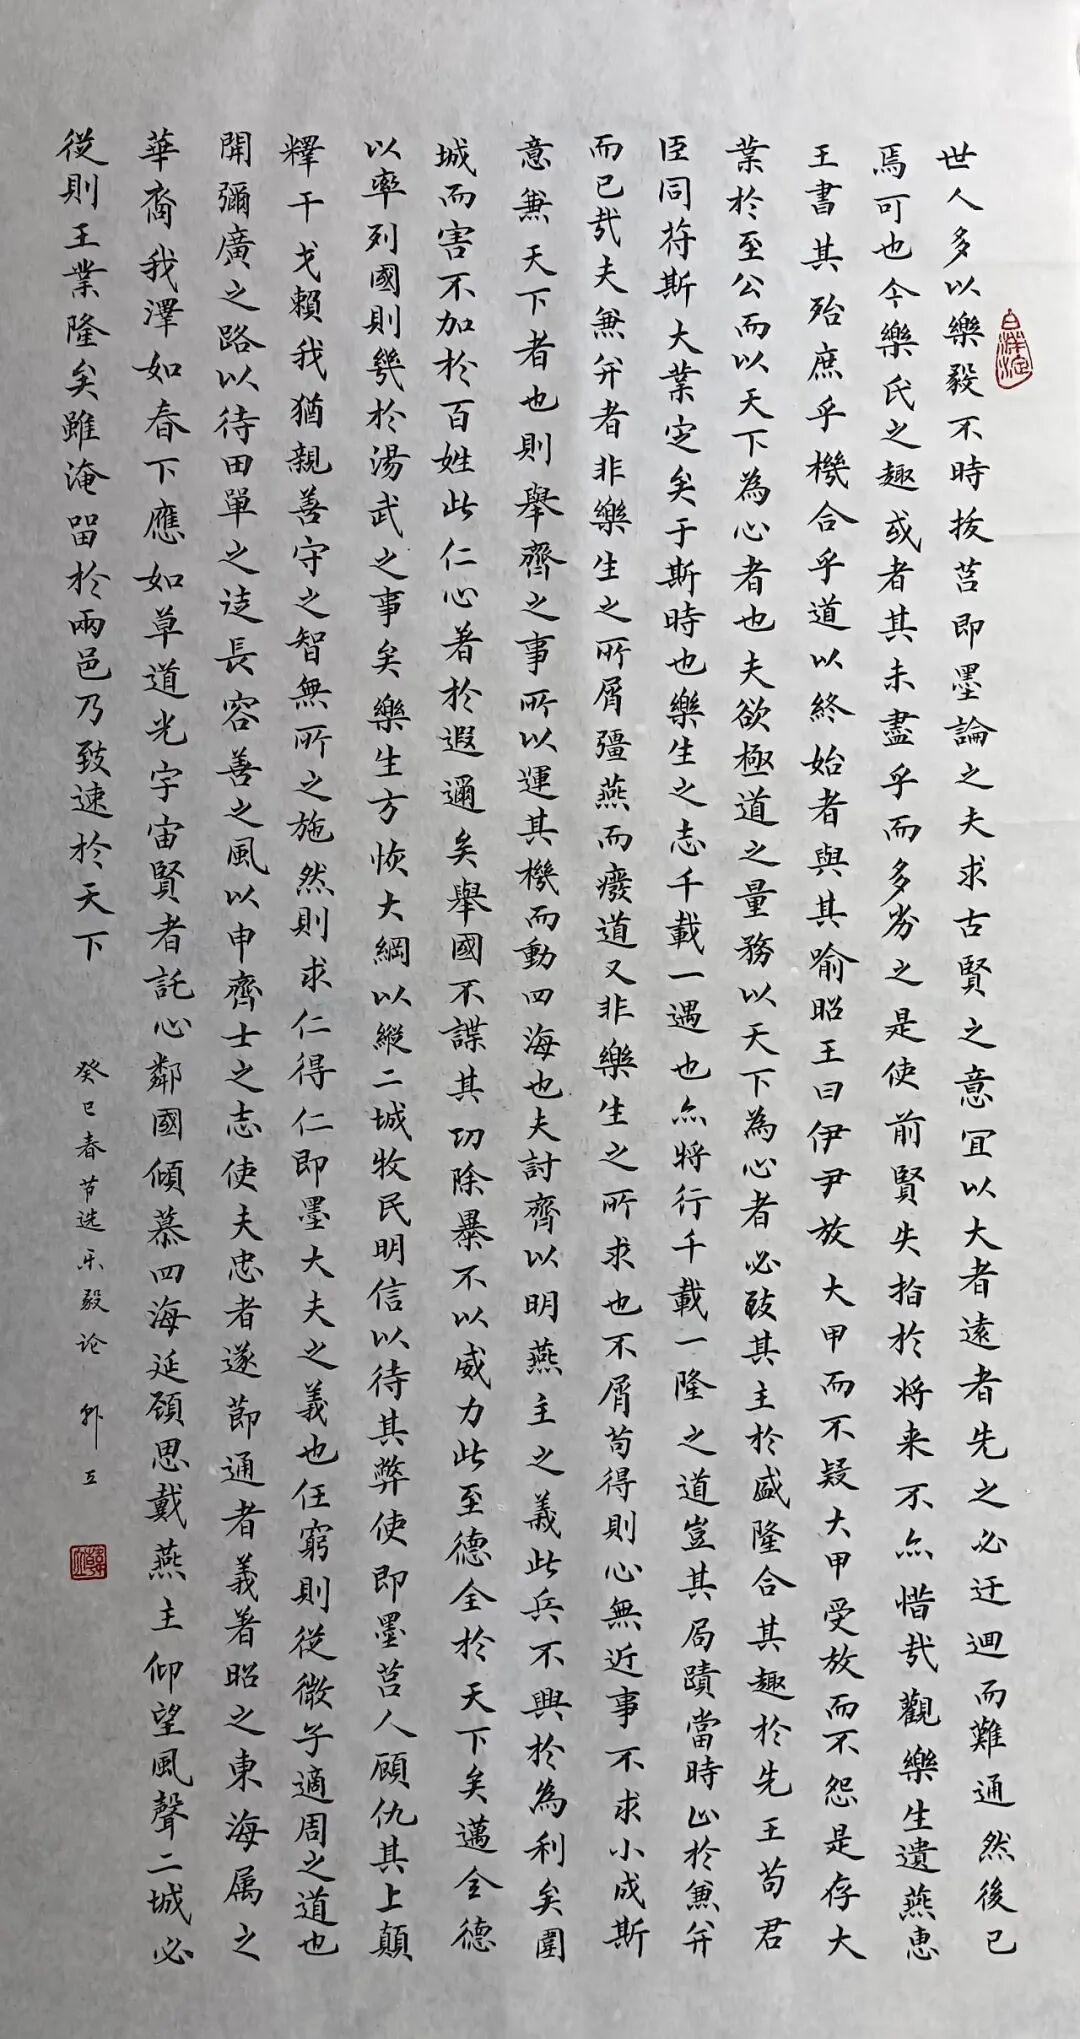 世人多以樂毅不時拔莒即墨論之夫求古賢之意宜以大者遠者先之必迂迴而難通然後已
焉可也今樂氏之趣或者其未盡乎而多劣之是使前賢失指於將来不亦惜哉觀樂生遺燕惠
王書其殆庶乎機合乎道以終始者與其喻昭王曰伊尹放大甲而不疑大甲受放而不怨是存大
業於至公而以天下為心者也夫欲極道之量務以天下為心者必致其主於盛隆合其趣於先王苟君
臣同符斯大業定矣于斯時也樂生之志千載一遇也亦將行千載一隆之道豈其局蹟當時止於兼并
而已哉夫兼并者非樂生之所屑彊燕而癈道又非樂生之所求也不屑苟得則心無近事不求小成斯
意兼天下者也則舉齊之事所以運其機而動四海也夫討齊以明燕主之義此兵不興於為利矣圍
城而害不加於百姓此仁心著於遐邇矣舉國不謀其功除暴不以威力此至德全於天下矣邁全德
以率列國則幾於湯武之事矣樂生方恢大綱以縱二城牧民明信以待其弊使即墨莒人顧仇其上顛
釋干戈賴我猶親善守之智無所之施然則求仁得仁即墨大夫之義也任窮則從微子適周之道也
開彌廣之路以待田單之徒長容善之風以申齊士之志使夫忠者遂節通者義著昭之東海属之
華裔我澤如春下應如草道光宇宙賢者託心鄰國傾慕四海延頸思戴燕主仰望風聲二城必
從則王業隆矣雖淹留於兩邑乃致速於天下
癸巳春节选乐毅论
白洋淀